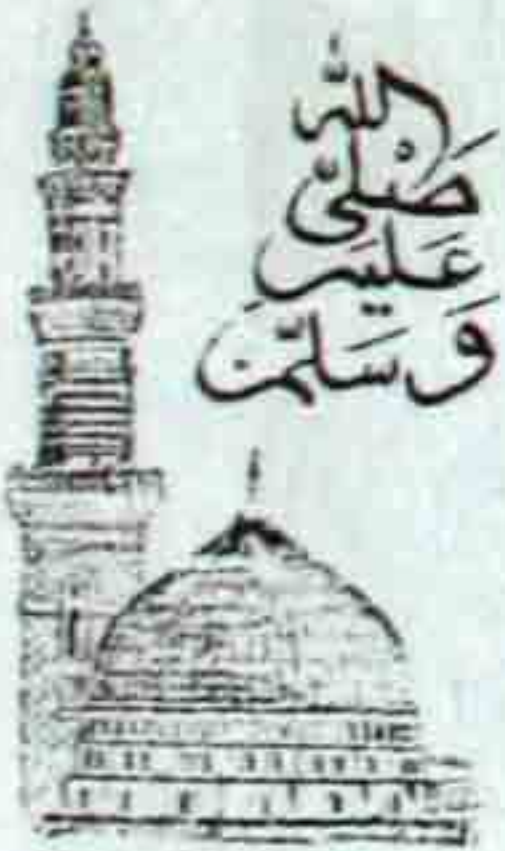 صَلَّى
اللّٰه
عَلَيْهِ
وَسَلَّمَ